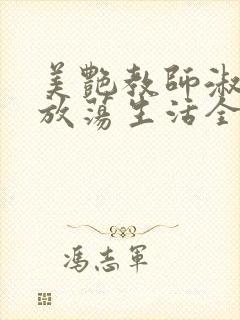 美艷教師淑
放蕩生活全
馮志軍